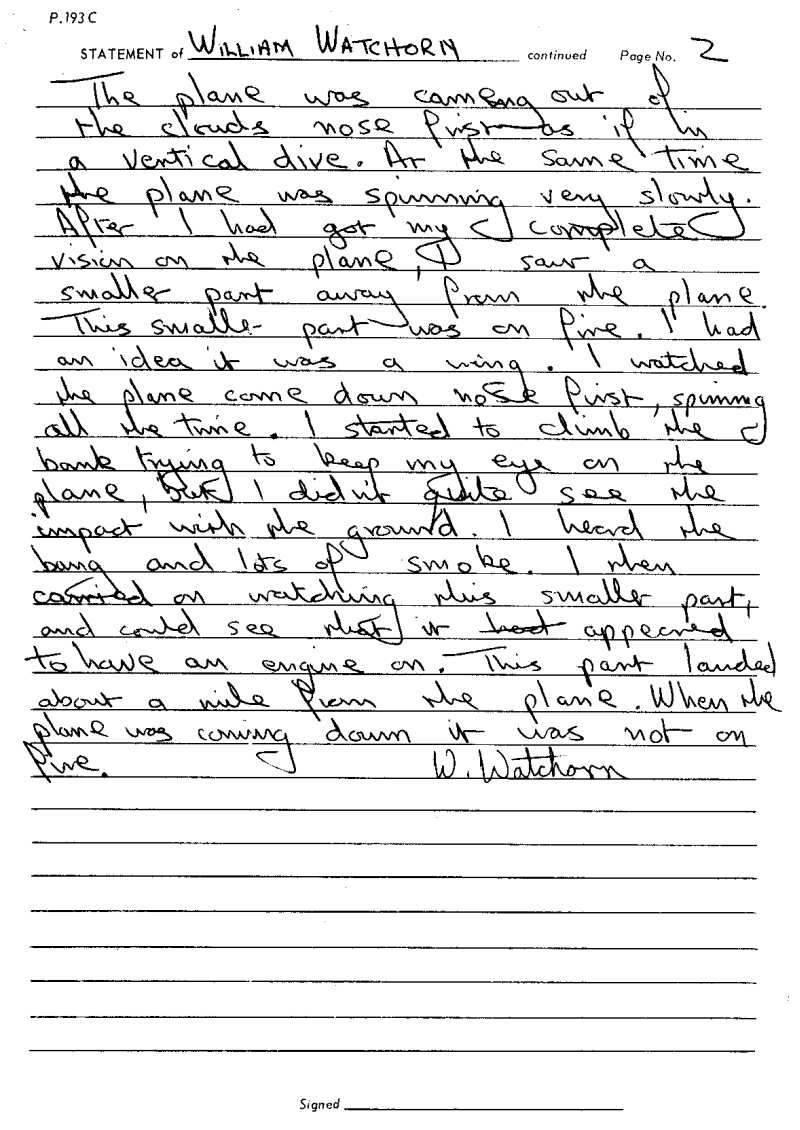 P.193C
STATEMENT of WILLIAM WATCHORN continued Page No. 2
The plane was coming out of
the clouds nose first as if in
a vertical dive. At the same time
the plane was spinning very slowly.
After I had got my complete
vision on the plane, I saw a
smaller part away from the plane.
This smaller part was on fire. I had
an idea it was a wing. I watched
the plane come down nose first, spinning
all the time. I started to climb the
bank trying to keep my eye on the
plane, but I didn't quite see the
impact with the ground. I heard the
bang and lots of smoke. I then
carried on watching this smaller part,
and could see that it had appeared
to have an engine on. This part landed
about a mile from the plane. When the
plane was coming down it was not on
fire. W. Watchorn
Signed